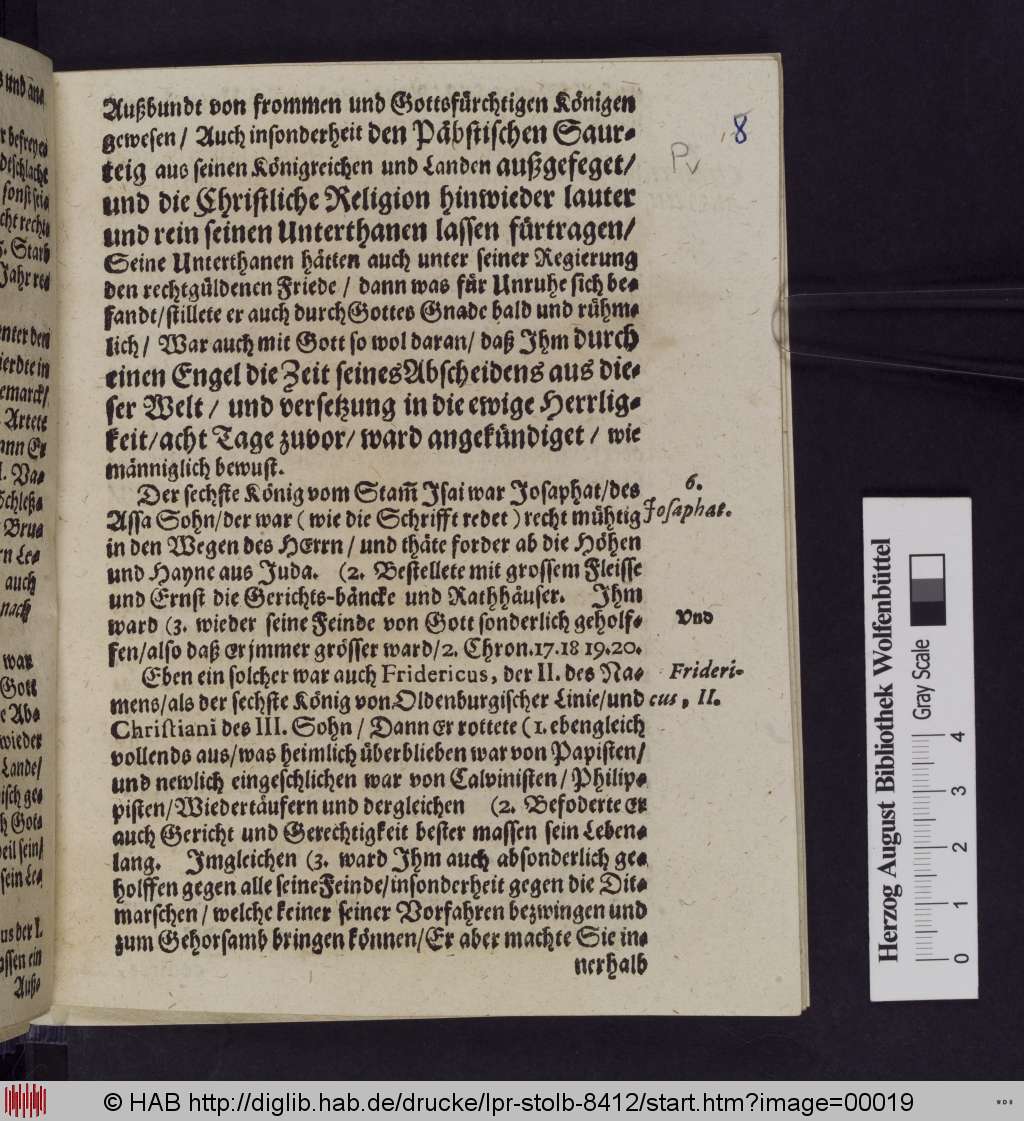 Außbundt von frommen und Gottsfürchtigen Königen
gewesen / Auch insonderheit den Päbstischen Saur-
teig aus seinen Königreichen und Landen außgefeget/
und die Christliche Religion hinwieder lauter
und rein seinen Unterthanen lassen fürtragen/
Seine Unterthanen hätten auch unter seiner Regierung
den rechtgüldenen Friede / dann was für Unruhe sich be-
fandt/stillete er auch durch Gottes Gnade bald und rühm-
lich / War auch mit Gott so wol daran/ daß Ihm durch
einen Engel die Zeit seines Abscheidens aus die-
ser Welt / und versetzung in die ewige Herrlig-
keit/acht Tage zuvor/ ward angekündiget / wie
männiglich bewust.
Der sechste König vom Stam̃ Isai war Josaphat/des
Assa Sohn/der war ( wie die Schrifft redet ) recht mühtig
in den Wegen des HErrn / und thäte forder ab die Höhen
und Hayne aus Juda. (2. Bestellete mit grossem Fleisse
und Ernst die Gerichts-bäncke und Rathhäuser. Ihm
ward (3. wieder seine Feinde von Gott sonderlich geholf-
fen/also daß er jmmer grösser ward/2. Chron.17.18 19.20.
Eben ein solcher war auch Fridericus, der II. des Na-
mens/als der sechste König von Oldenburgischer Linie/und
Christiani des III. Sohn / Dann Er rottete (1. ebengleich
vollends aus/was heimlich überblieben war von Papisten/
und newlich eingeschlichen war von Calvinisten / Philip-
pisten/Wiedertäufern und dergleichen (2. Befoderte er
auch Gericht und Gerechtigkeit bester massen sein Leben-
lang. Imgleichen (3. ward Ihm auch absonderlich ge-
holffen gegen alle seine Feinde/insonderheit gegen die Dit-
marschen / welche keiner seiner Vorfahren bezwingen und
zum Gehorsamb bringen können/Er aber machte Sie in-
nerhalb
6.
Josaphat.
Vnd
Frideri-
cus, II.
8
Pv
und
r befreyet
sonst sei-
cht recht-
Starb
Jahr re-
unter den
emarck/
Artete
ann Er
Va-
Schleß-
Bru-
rn Le-
auch
nach
war
Gott
e Ab-
wieder
Lande/
isch ge-
h Got-
eil sein/
sein Le-
us der I.
assen ein
Auß-
Herzog August Bibliothek Wolfenbüttel
Gray Scale
0 1 2 3 4
© HAB http://diglib.hab.de/drucke/lpr-stolb-8412/start.htm?image=00019